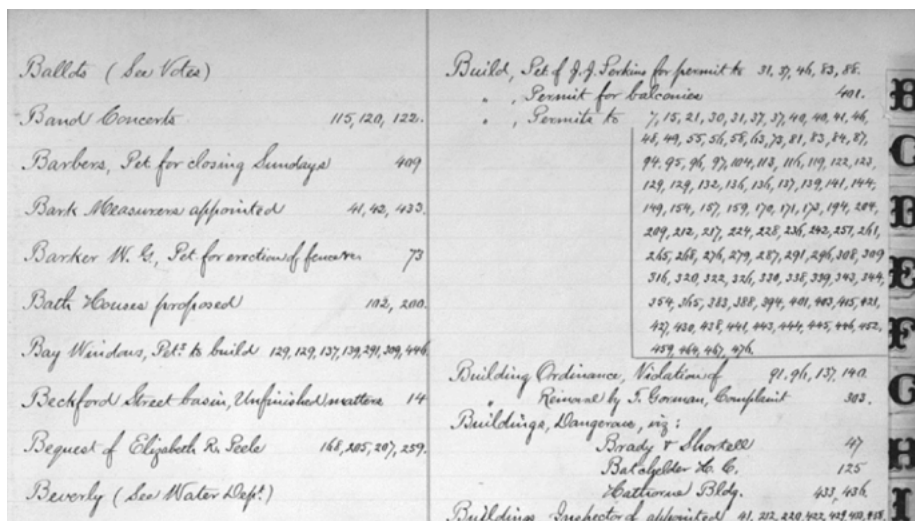 Ballots (See Votes)
Band Concerts 115, 120, 122.
Barbers, Pet. for closing Sundays 409
Bark Measurers appointed 41, 42, 433.
Barker W. G., Pet. for erection of fence 73
Bath Houses proposed 102, 200.
Bay Windows, Pets. to build 129, 129, 137, 139, 291, 309, 446
Beckford Street basin, Unfinished matters 14
Bequest of Elizabeth R. Peele 168, 205, 207, 259.
Beverly (See Water Dept.)
Build, Pet. of J. J. Perkins for permit to 31, 37, 46, 83, 88.
" , Permit for balconies 401.
" , Permits to 7, 15, 21, 30, 31, 37, 37, 40, 40, 41, 46,
48, 49, 55, 56, 58, 63, 73, 81, 83, 84, 87,
94, 95, 96, 97, 104, 113, 116, 119, 122, 123,
129, 129, 132, 136, 136, 137, 139, 141, 144,
149, 154, 157, 159, 170, 171, 173, 194, 204,
209, 212, 217, 224, 228, 236, 242, 257, 261,
265, 268, 276, 279, 287, 291, 296, 308, 309
316, 320, 322, 326, 330, 338, 339, 343, 344
354, 365, 383, 388, 394, 401, 403, 415, 421,
427, 430, 438, 441, 443, 444, 445, 446, 452,
459, 464, 467, 476.
Building Ordinance, Violation of 91, 96, 137, 140.
" Removal by T. Gorman, Complaint 303.
Buildings, Dangerous, viz:
Brady & Shortell 47
Batchelder H. C. 125
Hathorne Bldg. 433, 436.
Buildings, Inspector of appointed 41, 212, 220, 422, 429, 433,
E
F
G
H
I